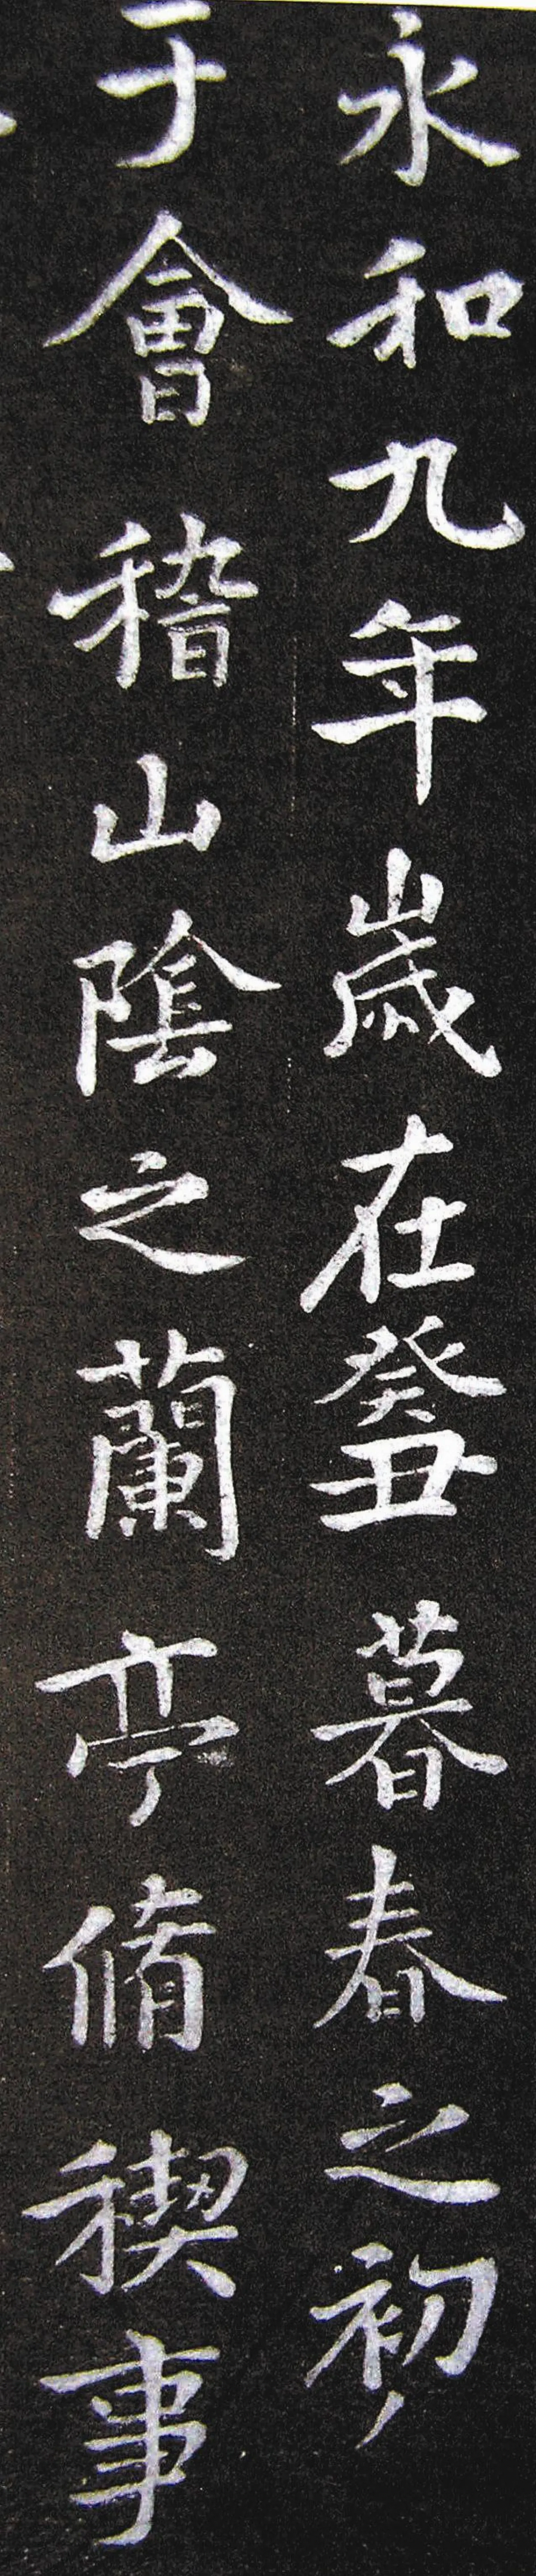 永和九年歲在癸丑暮春之初
于會稽山陰之蘭亭脩稧事